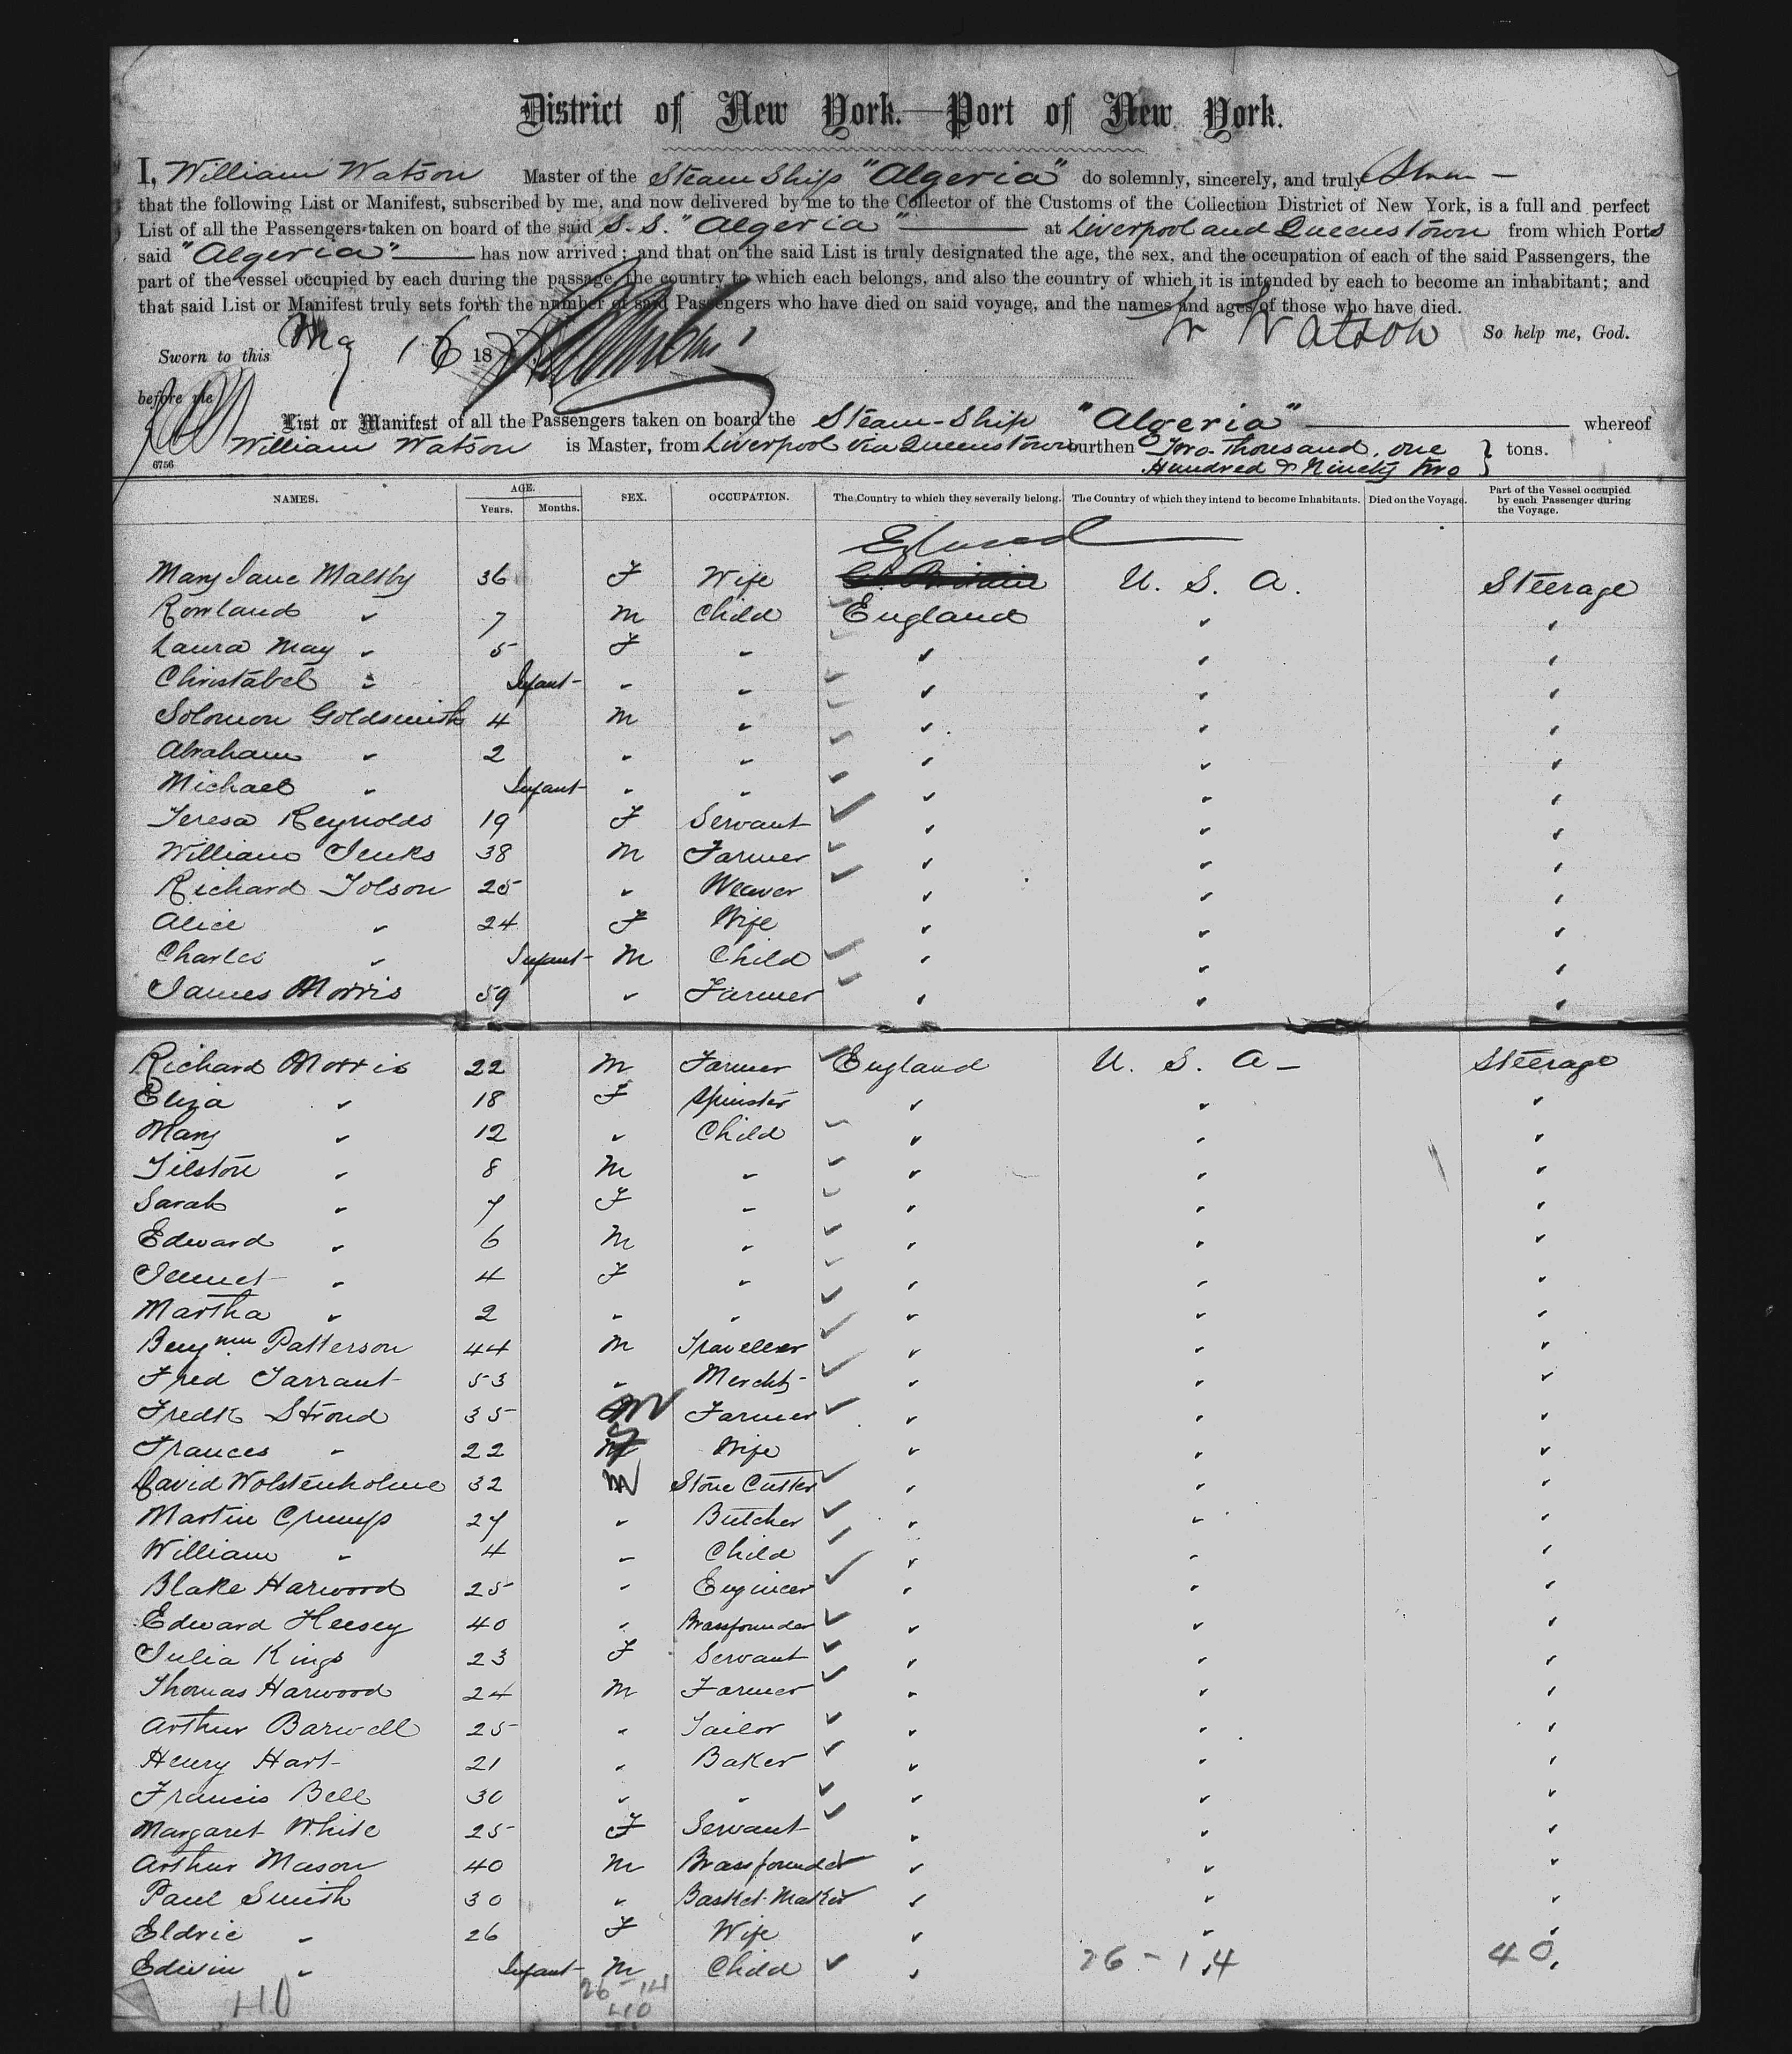 District of New York.—Port of New York.
I, William Watson Master of the Steam Ship "Algeria" do solemnly, sincerely, and truly
that the following List or Manifest, subscribed by me, and now delivered by me to the Collector of the Customs of the Collection District of New York, is a full and perfect
List of all the Passengers taken on board of the said S.S. "Algeria" at Liverpool and Queenstown from which Ports
said "Algeria" has now arrived; and that on the said List is truly designated the age, the sex, and the occupation of each of the said Passengers, the
part of the vessel occupied by each during the passage, the country to which each belongs, and also the country of which it is intended by each to become an inhabitant; and
that said List or Manifest truly sets forth the number of said Passengers who have died on said voyage, and the names and ages of those who have died.
W Watson So help me, God.
Sworn to this May 16 18
before me
List or Manifest of all the Passengers taken on board the Steam-Ship "Algeria" whereof
William Watson is Master, from Liverpool via Queenstown burthen Two thousand, one
Hundred & Ninety two } tons.
6756
NAMES. AGE. Years. Months. SEX. OCCUPATION. The Country to which they severally belong. The Country of which they intend to become Inhabitants. Died on the Voyage. Part of the Vessel occupied by each Passenger during the Voyage.
Mary Jane Maltby 36 F Wife U. S. A. Steerage
Rowland " 7 M Child England " "
Laura May " 5 F " " " "
Christabel " Infant " " " " "
Solomon Goldsmith 4 M " " " "
Abraham " 2 " " " " "
Michael " Infant " " " " "
Teresa Reynolds 19 F Servant " " "
William Jenks 38 M Farmer " " "
Richard Tolson 25 " Weaver " " "
Alice " 24 F Wife " " "
Charles " Infant M Child " " "
James Morris 59 " Farmer " " "
Richard Morris 22 M Farmer England U. S. A Steerage
Eliza " 18 F Spinster " " "
Mary " 12 " Child " " "
Tilston " 8 M " " " "
Sarah " 7 F " " " "
Edward " 6 M " " " "
" 4 F " " " "
Martha " 2 " " " " "
Benjmin Patterson 44 M Traveller " " "
Fred Tarrant 53 " Mercht " " "
Fredk Stroud 35 M Farmer " " "
Frances " 22 F Wife " " "
David Wolstenholme 32 M Stone Cutter " " "
Martin Crump 27 " Butcher " " "
William " 4 " Child " " "
Blake Harwood 25 " Engineer " " "
Edward Heesey 40 " Brassfounder " " "
Julia Kings 23 F Servant " " "
Thomas Harwood 24 M Farmer " " "
Arthur Barwell 25 " Tailor " " "
Henry Hart 21 " Baker " " "
Francis Bell 30 " " " " "
Margaret White 25 F Servant " " "
Arthur Mason 40 M Brassfounder " " "
Paul Smith 30 " Basket Maker " " "
Eldrie " 26 F Wife " " "
Edwin " Infant M Child " 26-14 40
40 26-14
40